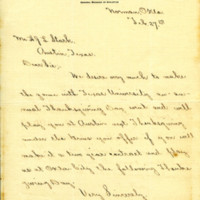 Norman Okla
Feb 27th
Mr
Austin, Texas.
Dear Sir:
We desire very much to make
the game with Texas University an an-
nual Thanksgiving Day event and will
play you at Austin next Thanksgiving
under the terms your offer if you will
make it a two year contract and
us at Oklahoma City the following Thanks-
giving Day.
Very Sincerely